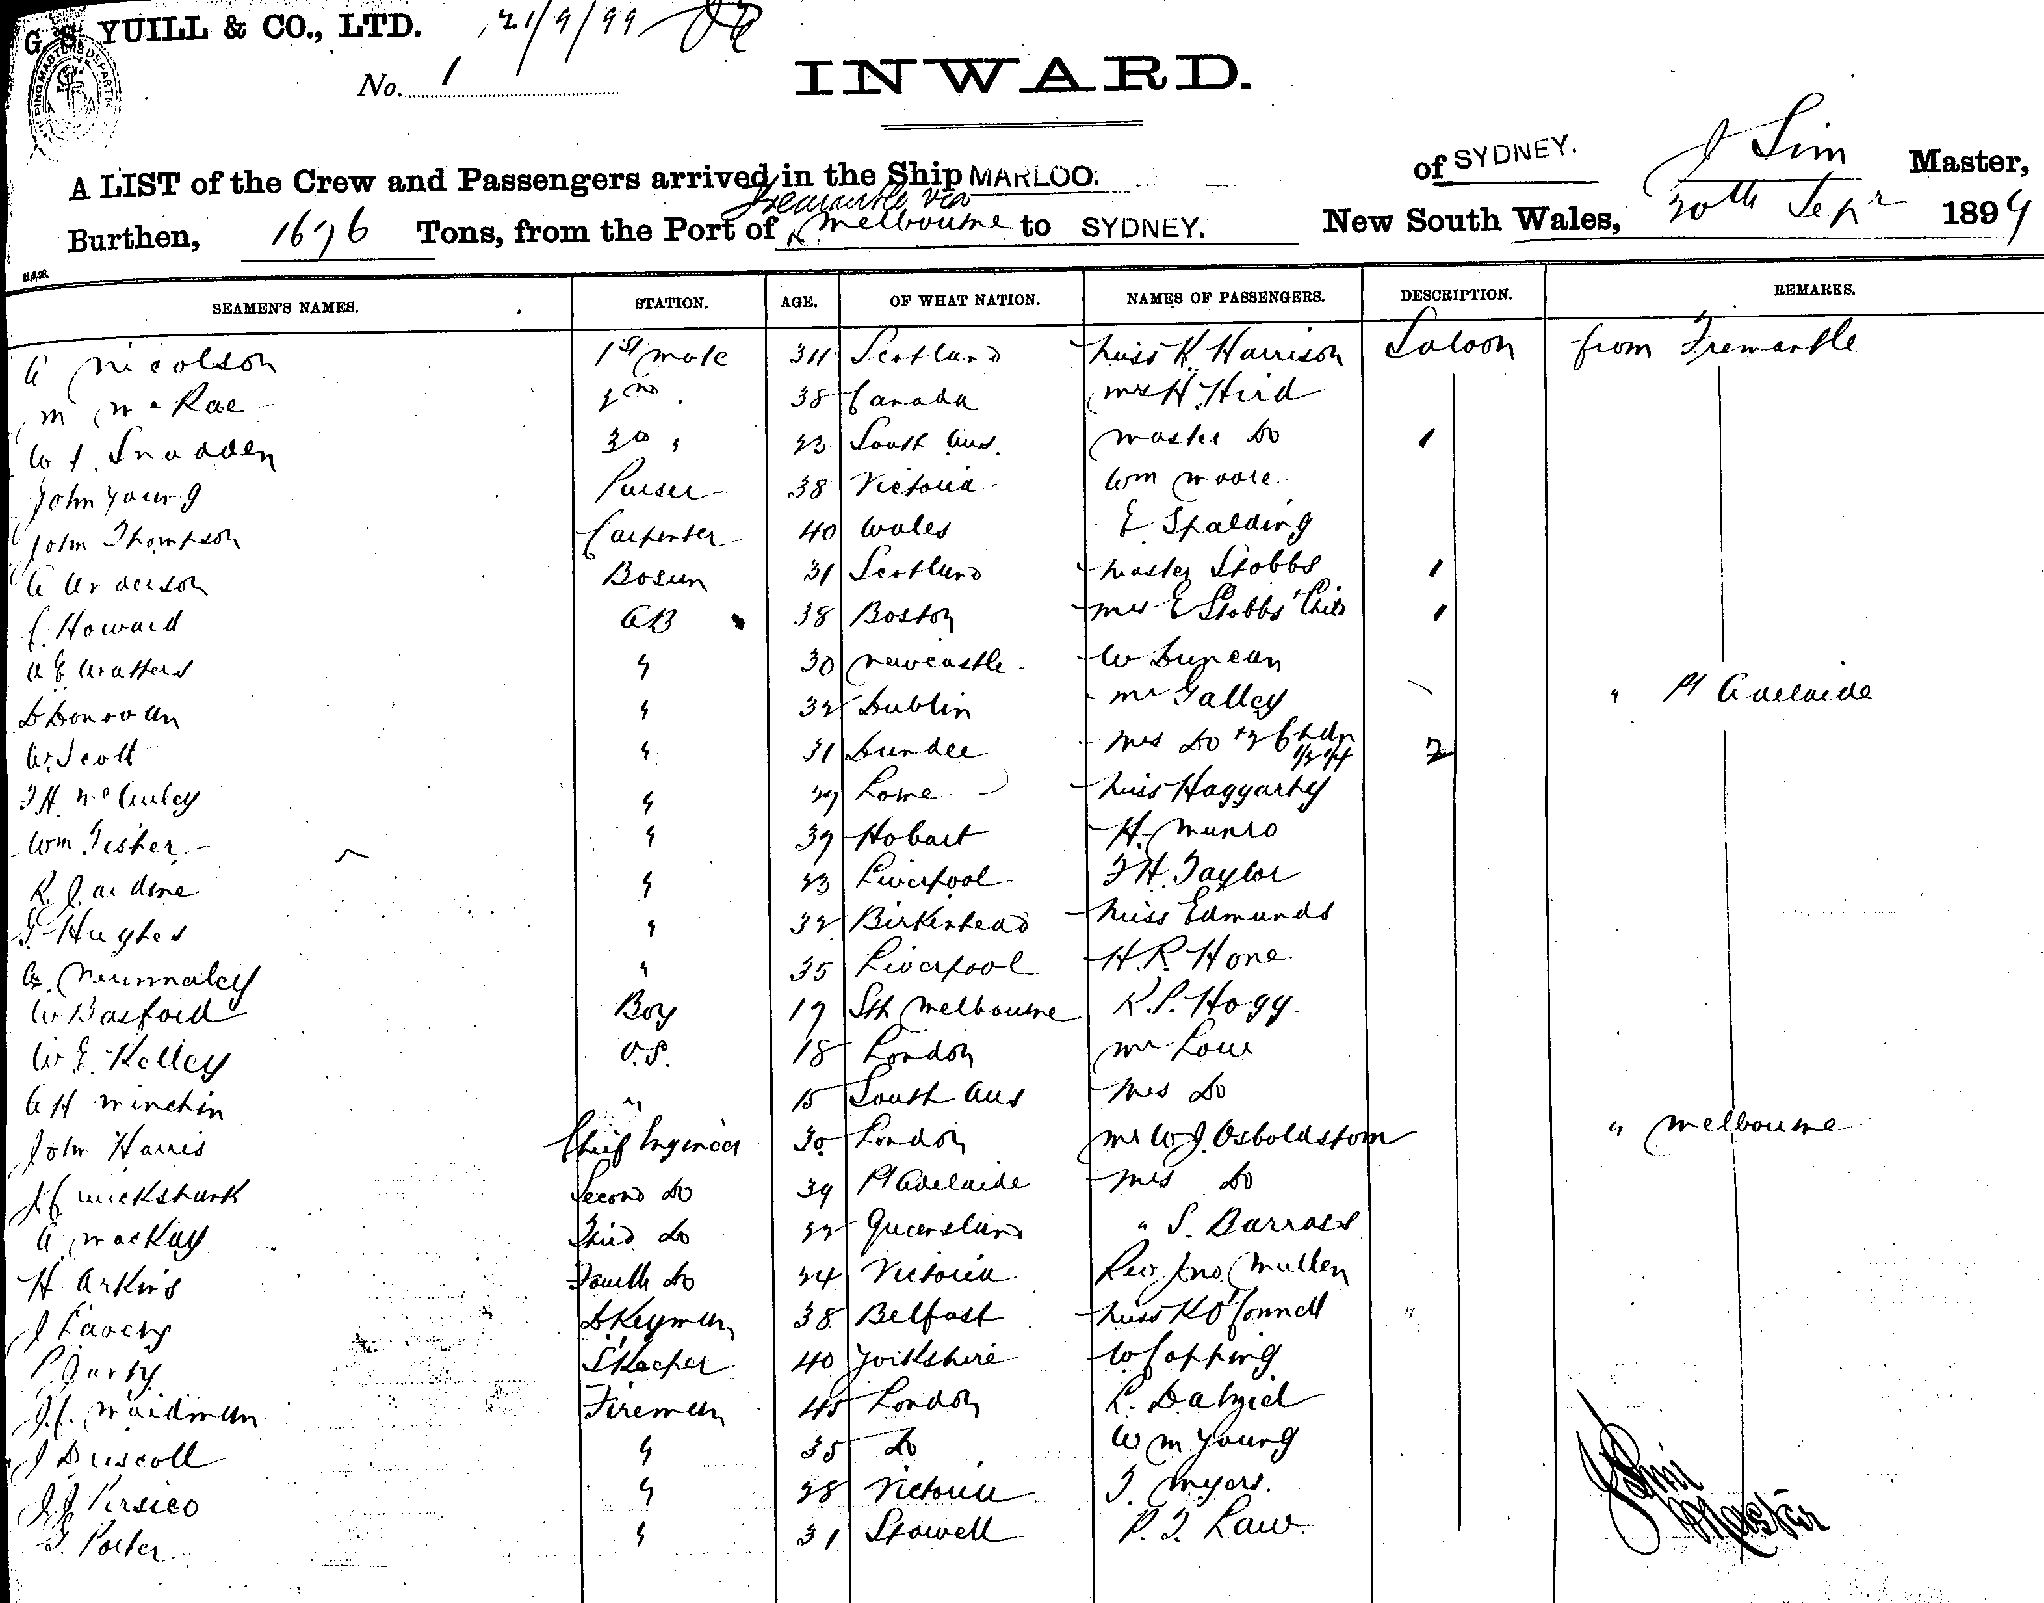 G. S. YUILL & CO., LTD. 21/9/99
No. 1
INWARD.
A LIST of the Crew and Passengers arrived in the Ship MARLOO. of SYDNEY. J Sim Master,
Fremantle via
Burthen, 1676 Tons, from the Port of Melbourne to SYDNEY. New South Wales, 20th Sepr 1899
SEAMEN'S NAMES. STATION. AGE. OF WHAT NATION. NAMES OF PASSENGERS. DESCRIPTION. REMARKS.
A Nicolson 1st mate 34 Scotland Miss K. Harrison Saloon from Fremantle
M McRae 2nd 38 Canada Mrs H. Hird
W S. Snadden 3rd " 23 South Aus. Master Do 1
John Young Purser 38 Victoria Wm Moore
John Thompson Carpenter 40 Wales E Spalding
A Anderson Bosun 31 Scotland Master Stobbs 1
C. Howard AB 38 Boston Mrs E Stobbs + Child 1
A E Watters " 30 Newcastle W Duncan
D Donovan " 32 Dublin Mr Galley " Pt Adelaide
W. Scott " 31 Dundee Mrs Do + 2 Chdn 2
McAuley " 29 Miss Haggarty
Wm Fisher " 39 Hobart H. Munro
R. Jardine " 23 Liverpool F H. Taylor
Hughes " 32 Birkenhead Miss Edmunds
" 35 Liverpool H. R. Hone
W Basford Boy 17 Sth Melbourne R. S. Hogg
W E. Kelley O.S. 18 London Mr Low
A H Minchin " 15 South Aus Mrs Do
John Harris Chief Engineer 30 London Mr W J. Osboldstom " Melbourne
J Cruickshank Second Do 39 Pt Adelaide Mrs Do
A MacKay Third Do 22 Queensland " S. Barrass
H Arkins Fourth Do 24 Victoria Rev. Jno. Mullen
J Lavery DKeyman 38 Belfast Miss K O'Connell "
P Garty S'Keeper 40 Yorkshire W Copping
J. C. Maidman Fireman 45 London R. Dalziel
J Driscoll " 35 Do W M Young
J J Persico " 28 Victoria T. Myers.
Porter " 31 Stowell P. F. Law
J Sim
Master